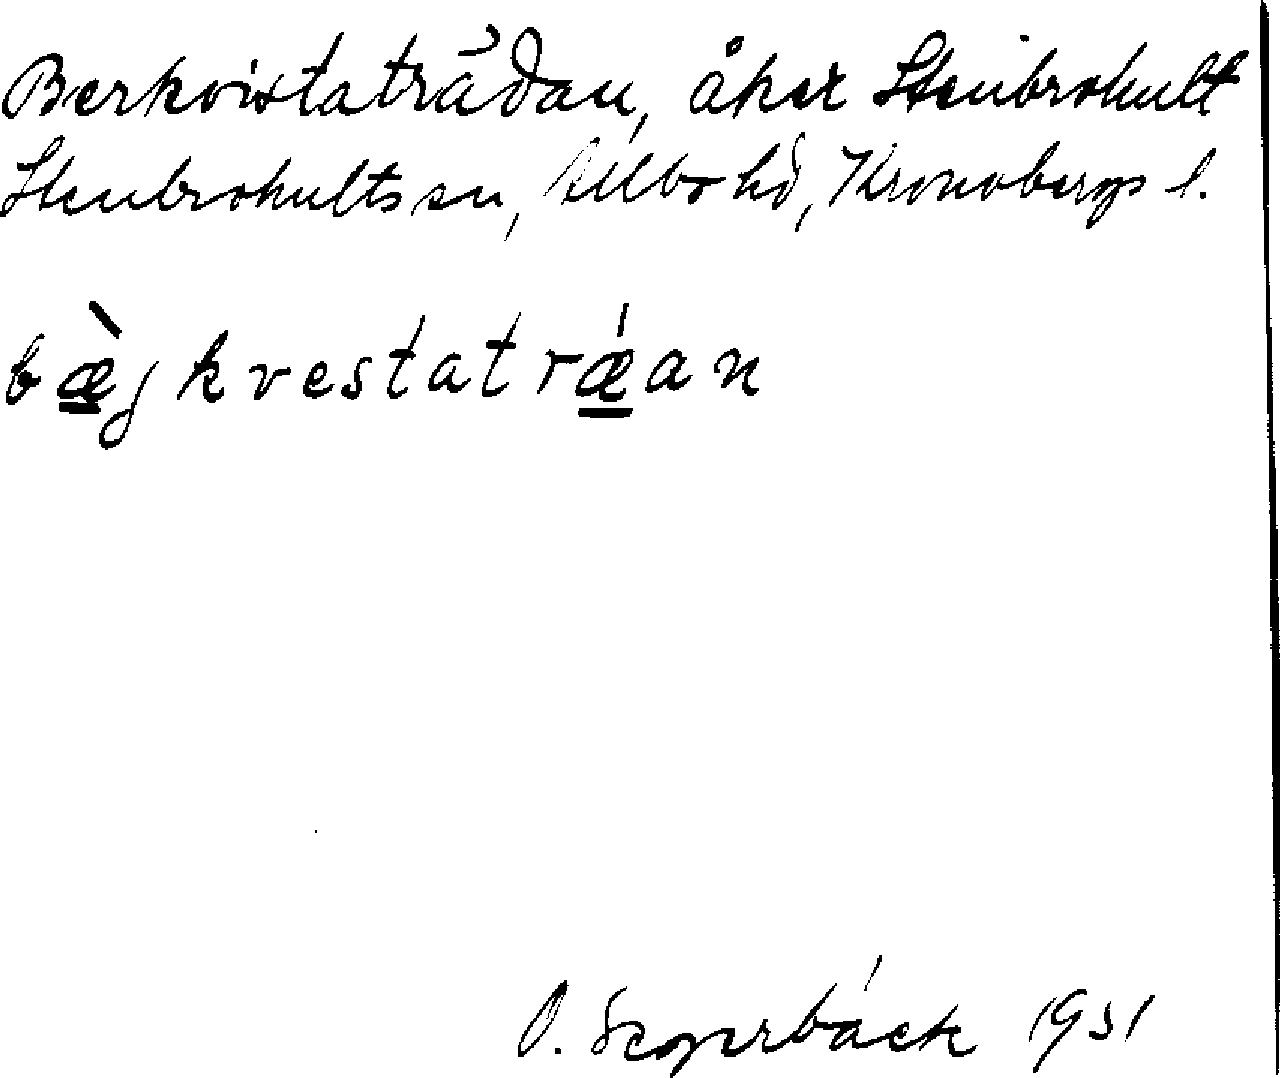 Berkvistaträdan, åker Stenbrohult
Stenbrohults sn, Allbo hd, Kronobergs l.
bæ̀jkvestatrǽan
O. Segerbäck 1931